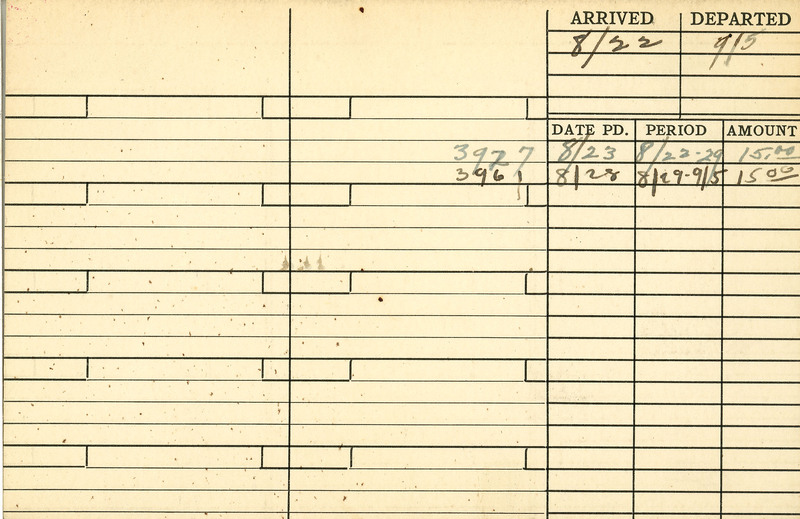 ARRIVED DEPARTED
8/22 9/5
DATE PD. PERIOD AMOUNT
3927 8/23 8/22-29 15.00
3961 8/28 8/29-9/5 15.00